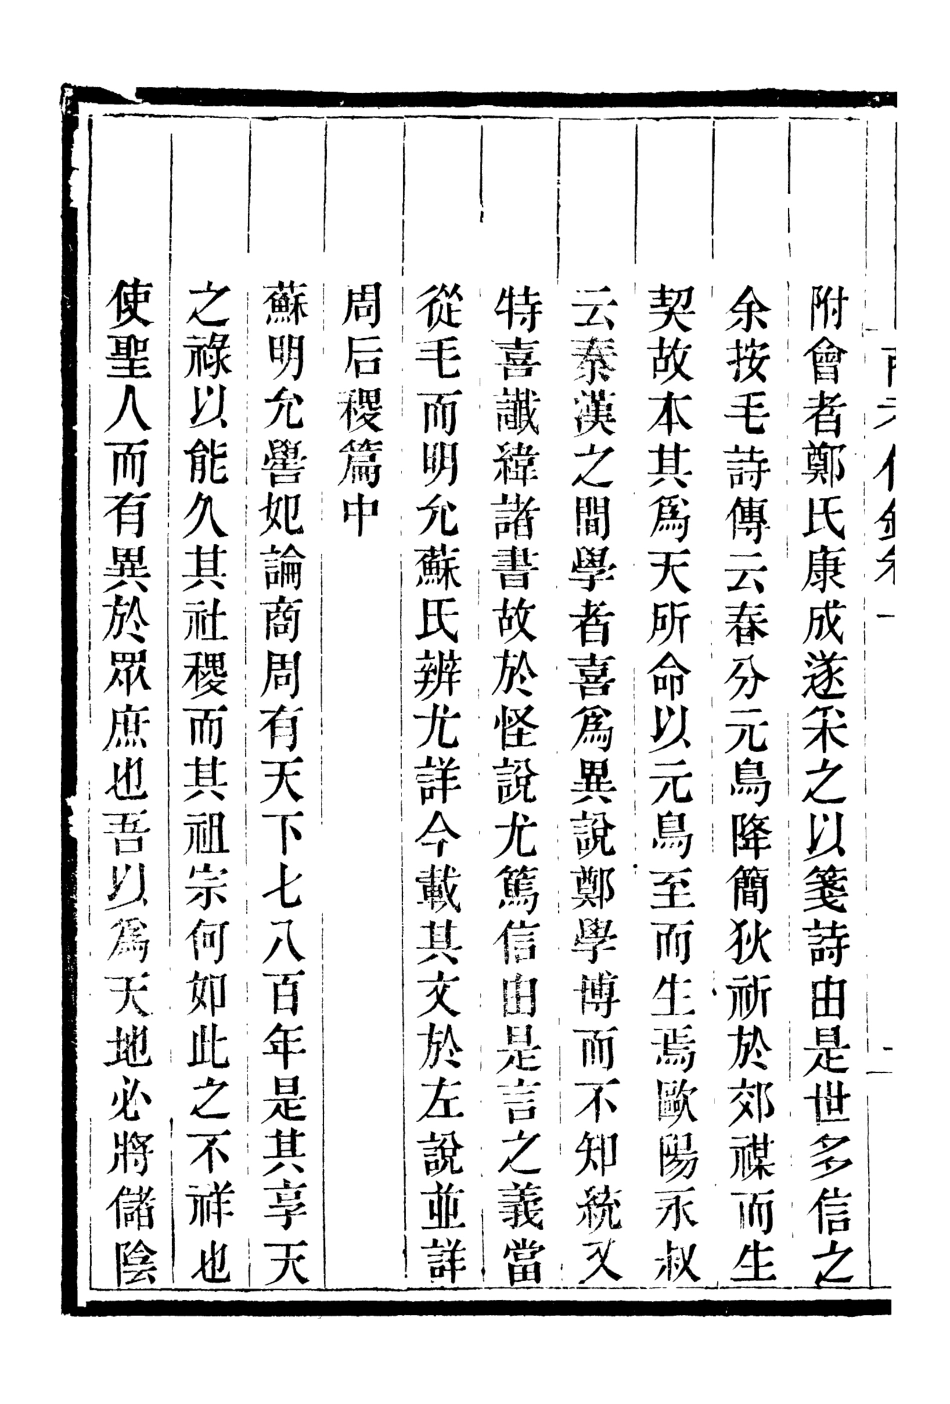 附會者鄭氏康成遂采之以箋詩由是世多信之
余按毛詩傳云春分元鳥降簡狄祈於郊禖而生
契故本其爲天所命以元鳥至而生焉歐陽永叔
云秦漢之間學者喜爲異說鄭學博而不知統又
特喜讖緯諸書故於怪說尤篤信由是言之義當
從毛而明允蘇氏辨尤詳今載其文於左說並詳
周后稷篇中
蘇明允嚳妃論商周有天下七八百年是其享天
之祿以能久其社稷而其祖宗何如此之不祥也
使聖人而有異於眾庶也吾以爲天地必將儲陰